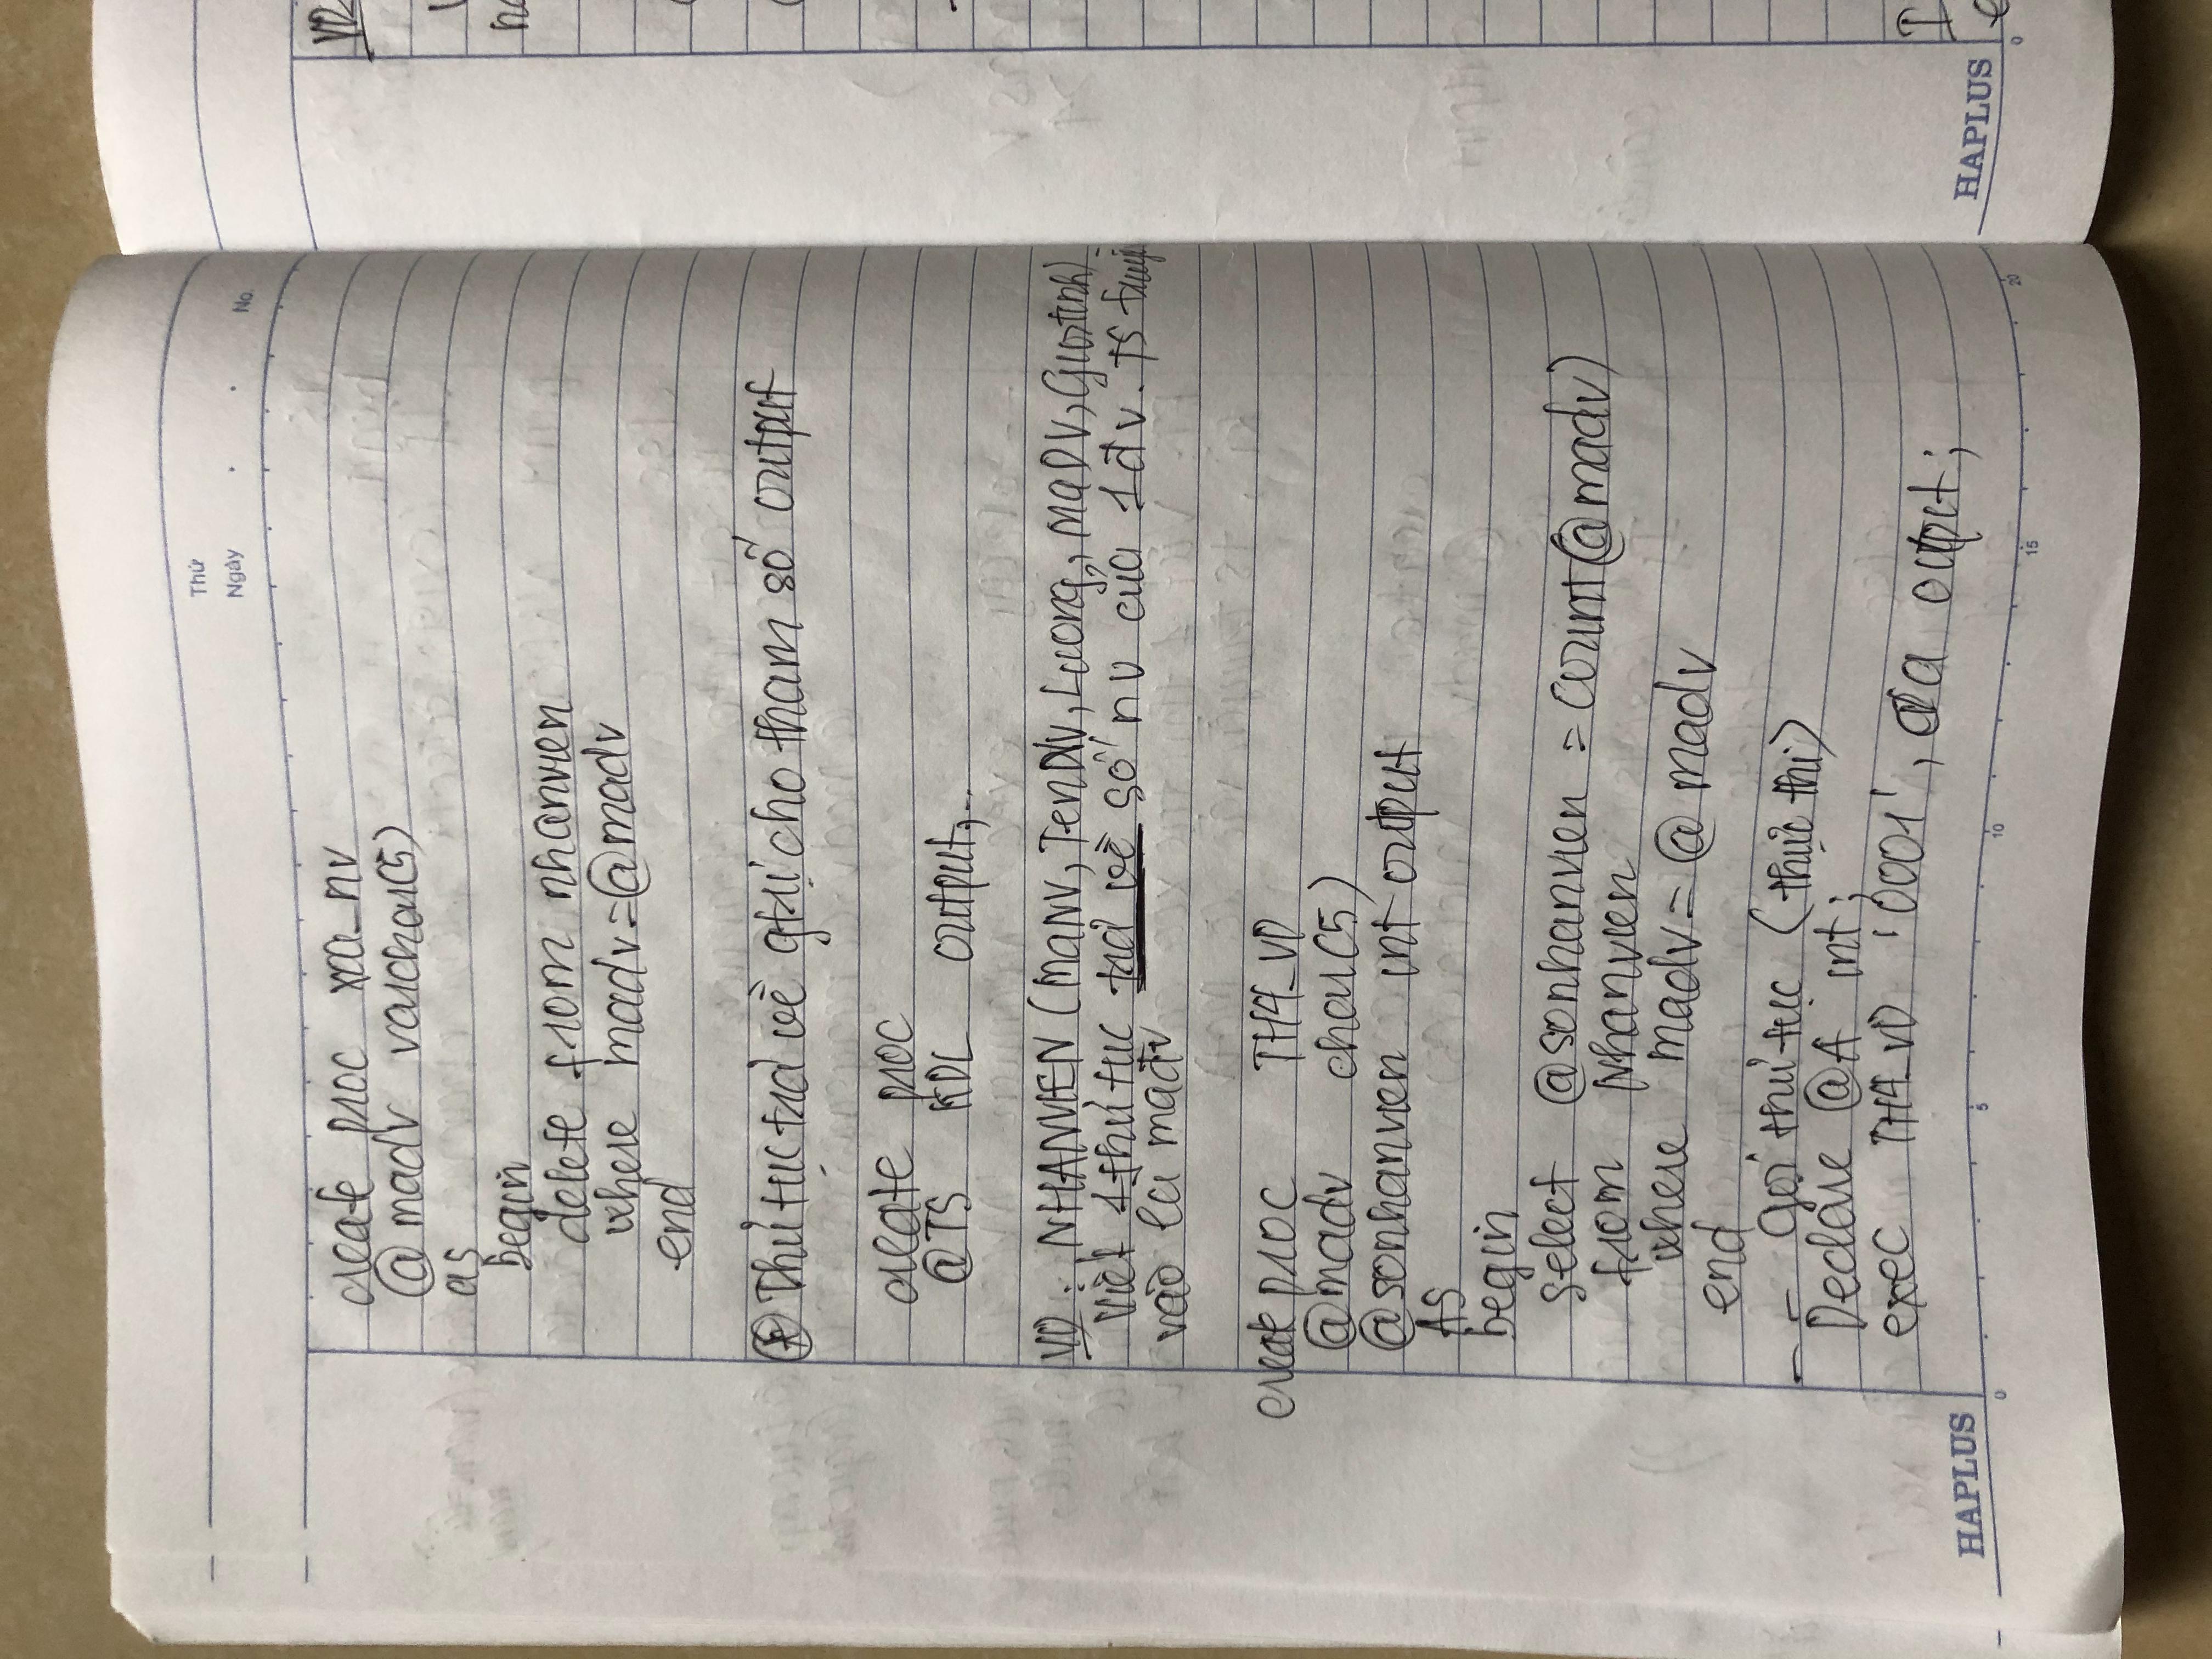 Thứ
Ngày
No.
create proc xoa_nv
@madv varchar(5)
as
begin
delete from nhanvien
where madv=@madv
end
* Thủ tục trả về gtrị cho tham số output
create proc
@TS KDL output,..
VD: NHANVIEN (MaNV, TenDV, Luong, MaDV, Gioitinh)
Viết 1 thủ tục trả về số nv của 1 đv. TS truyền
vào là mađv
create proc TH4_VD
@madv char(5)
@sonhanvien int output
AS
begin
select @sonhanvien = count(@madv)
from Nhanvien
where madv = @madv
end
-- Gọi thủ tục (thực thi)
Declare @A int;
exec TH4_VD '0001', @a output;
HAPLUS
0 5 10 15 20
VD
HAPLUS
0